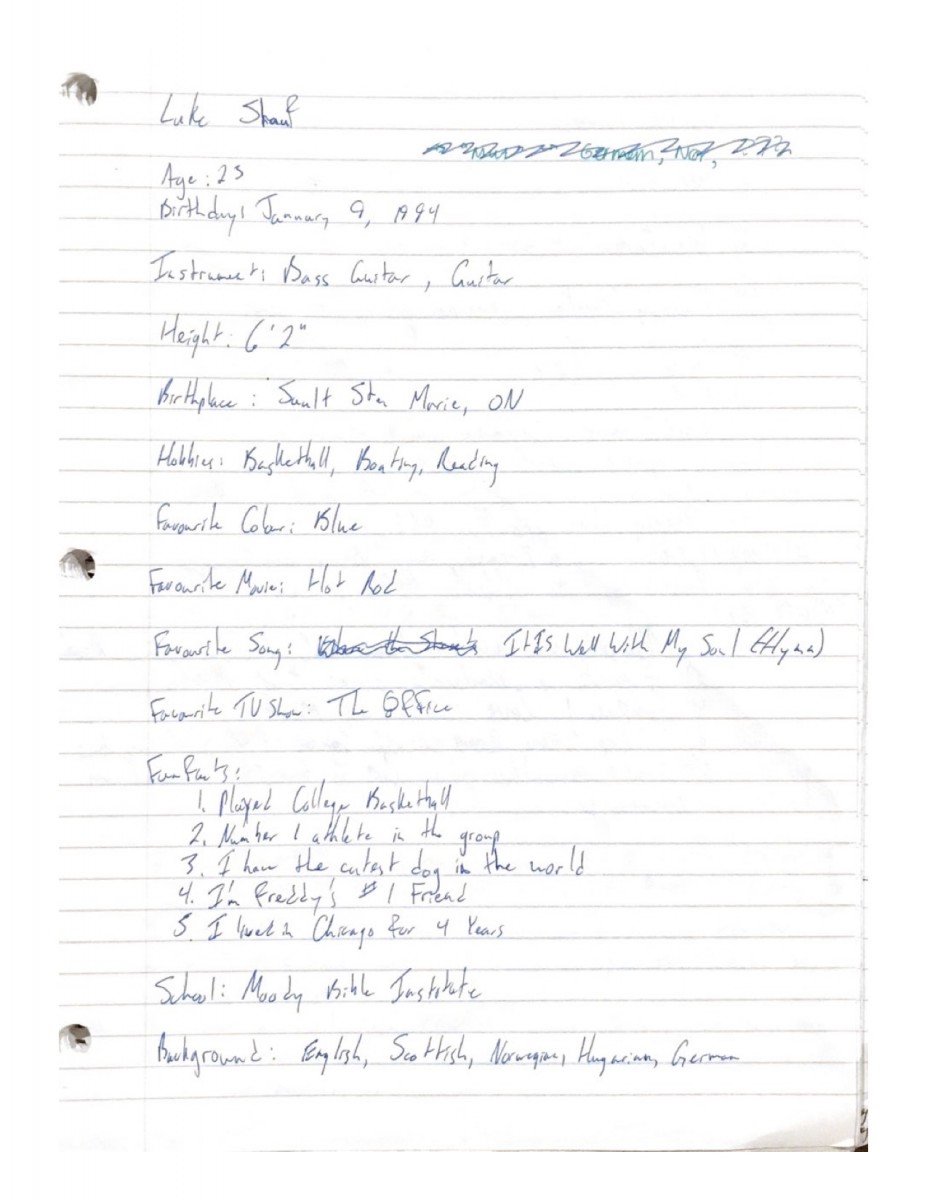 Luke Shauf
German, Nor,
Age: 25
Birthday: January 9, 1994
Instrument: Bass Guitar, Guitar
Height: 6'2"
Birthplace: Sault Ste. Marie, ON
Hobbies: Basketball, Boating, Reading
Favourite Colour: Blue
Favourite Movie: Hot Rod
Favourite Song: It Is Well With My Soul (Hymn)
Favourite TV Show: The Office
Fun Facts:
1. Played College Basketball
2. Number 1 athlete in the group
3. I have the cutest dog in the world
4. I'm Freddy's #1 Friend
5. I lived in Chicago for 4 Years
School: Moody Bible Institute
Background: English, Scottish, Norwegian, Hungarian, German